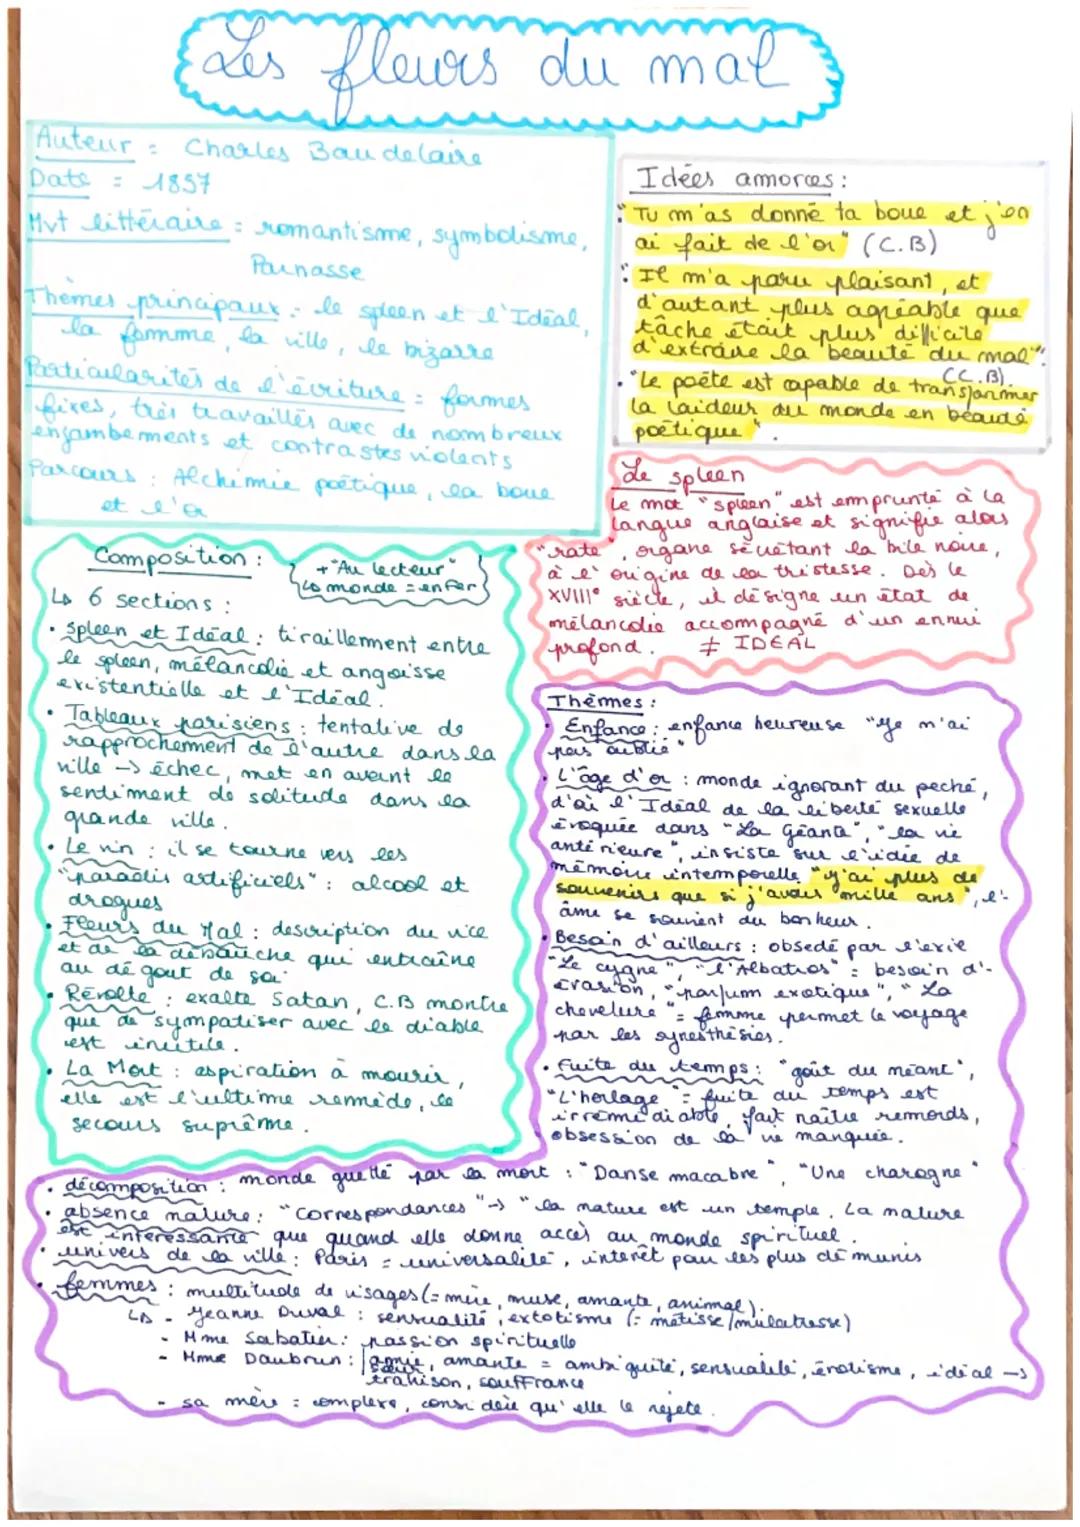 Les fleurs du mal
Auteur : Charles Baudelaire
Date : 1857
Mvt littéraire : romantisme, symbolisme,
Parnasse
Thèmes principaux : le spleen et l'Idéal,
la femme, la ville, le bizarre
Particularités de l'écriture : formes
fixes, très travaillés avec de nombreux
enjambements et contrastes violents
Parcours : Alchimie poétique, la boue
et l'or
Idées amorces :
"Tu m'as donné ta boue et j'en
ai fait de l'or" (C.B)
"Il m'a paru plaisant, et
d'autant plus agréable que
tâche était plus difficile
d'extraire la beauté du mal".
(C.B).
. "Le poète est capable de transformer
la laideur du monde en beauté
poétique".
Le spleen
Le mot "spleen" est emprunté à la
langue anglaise et signifie alors
"rate", organe sécrétant la bile noire,
à l'origine de la tristesse. Dès le
XVIII° siècle, il désigne un état de
mélancolie accompagné d'un ennui
profond. ≠ IDEAL
Composition :
+ "Au lecteur"
↳ monde = enfer
↳ 6 sections :
• Spleen et Idéal : tiraillement entre
le spleen, mélancolie et angoisse
existentielle et l'Idéal.
• Tableaux parisiens : tentative de
rapprochement de l'autre dans la
ville -> échec, met en avant le
sentiment de solitude dans la
grande ville.
• Le vin : il se tourne vers les
"paradis artificiels" : alcool et
drogues
• Fleurs du Mal : description du vice
et de la débauche qui entraîne
au dégout de soi
• Révolte : exalte Satan, C.B montre
que de sympatiser avec le diable
est inutile.
• La Mort : aspiration à mourir,
elle est l'ultime remède, le
secours suprême.
Thèmes :
• Enfance : enfance heureuse "Je n'ai
pas oublié"
• L'âge d'or : monde ignorant du peché,
d'où l'Idéal de la liberté sexuelle
évoquée dans "La Géante", "la vie
antérieure", insiste sur l'idée de
mémoire intemporelle "j'ai plus de
souvenirs que si j'avais mille ans", l'-
âme se souvient du bonheur.
• Besoin d'ailleurs : obsedé par l'exil
"Le cygne", "l'Albatros" = besoin d'-
évasion, "parfum exotique", "La
chevelure" = femme permet le voyage
par les synesthésies.
• Fuite du temps : "goût du néant",
"L'horloge" = fuite du temps est
irrémédiable, fait naître remords,
obsession de la vie manquée.
• décomposition : monde guetté par la mort : "Danse macabre", "Une charogne"
• absence nature : "Correspondances" -> "la nature est un temple. La nature
est intéressante que quand elle donne accès au monde spirituel.
• univers de la ville : Paris = universalité, intérêt pour les plus démunis
• femmes : multitude de visages (= mère, muse, amante, animal).
↳ - Jeanne Duval : sensualité, extotisme (= métisse/mulatresse)
- Mme Sabatier : passion spirituelle
- Mme Daubrun : amie, amante = ambiguité, sensualité, érotisme, idéal ->
sœur
trahison, souffrance
- sa mère : complexe, considère qu'elle le rejete.